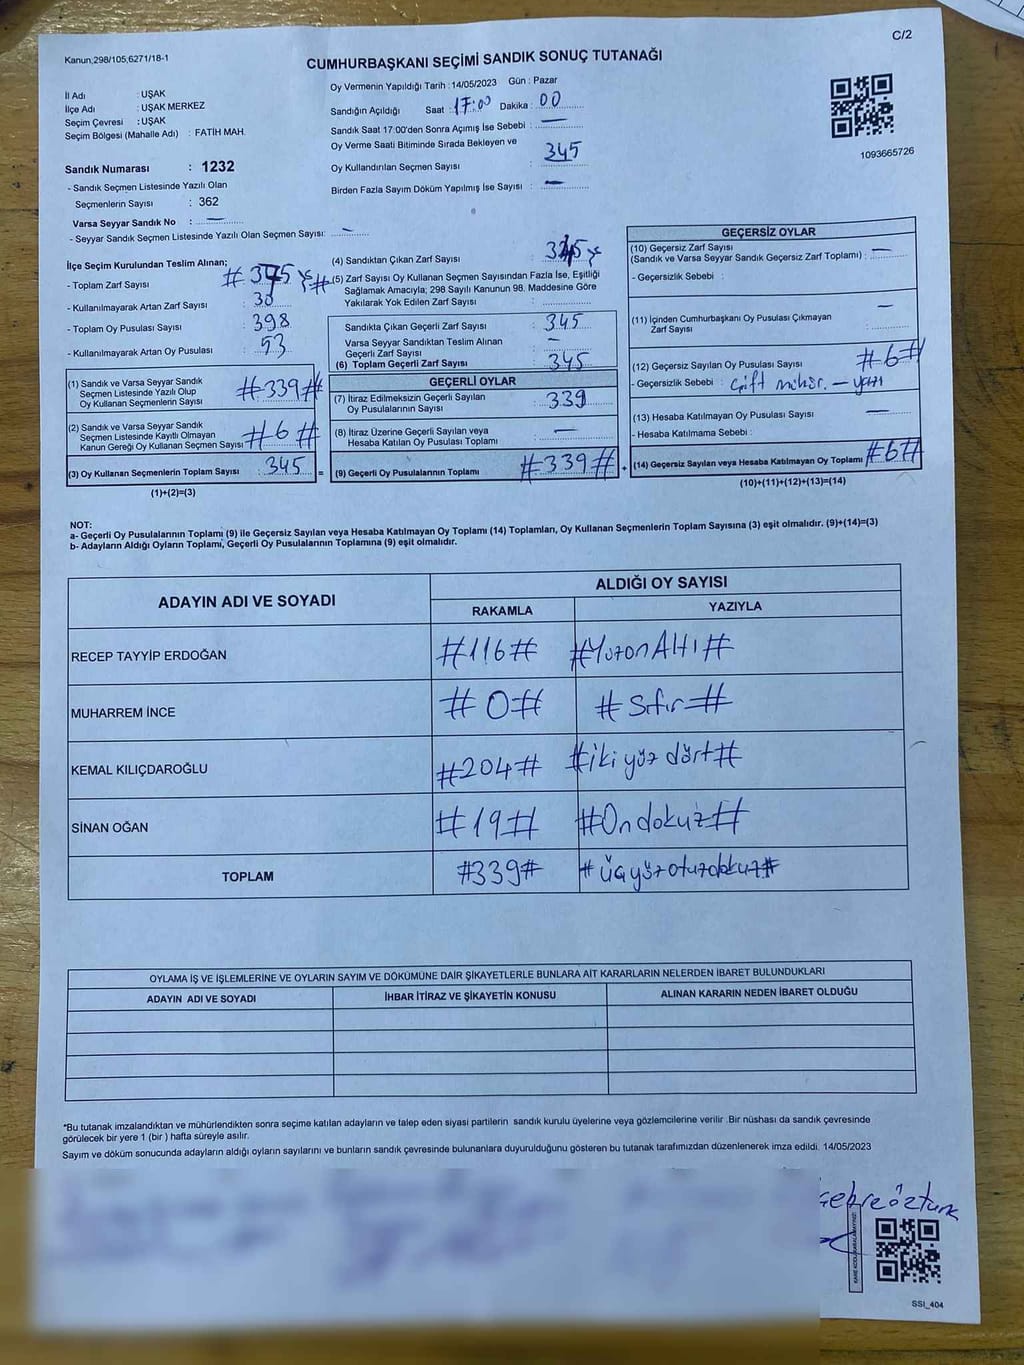 C/2
Kanun,298/105,6271/18-1
CUMHURBAŞKANI SEÇİMİ SANDIK SONUÇ TUTANAĞI
İl Adı : UŞAK
İlçe Adı : UŞAK MERKEZ
Seçim Çevresi : UŞAK
Seçim Bölgesi (Mahalle Adı) : FATİH MAH.
Sandık Numarası : 1232
- Sandık Seçmen Listesinde Yazılı Olan
Seçmenlerin Sayısı : 362
Varsa Seyyar Sandık No : —
- Seyyar Sandık Seçmen Listesinde Yazılı Olan Seçmen Sayısı: —
Oy Vermenin Yapıldığı Tarih : 14/05/2023 Gün : Pazar
Sandığın Açıldığı Saat : 17:00 Dakika : 00
Sandık Saat 17.00'den Sonra Açımış İse Sebebi : —
Oy Verme Saati Bitiminde Sırada Bekleyen ve
Oy Kullandırılan Seçmen Sayısı : 345
Birden Fazla Sayım Döküm Yapılmış İse Sayısı : —
1093665726
İlçe Seçim Kurulundan Teslim Alınan;
- Toplam Zarf Sayısı :
- Kullanılmayarak Artan Zarf Sayısı : 30
- Toplam Oy Pusulası Sayısı : 398
- Kullanılmayarak Artan Oy Pusulası : 53
(1) Sandık ve Varsa Seyyar Sandık
Seçmen Listesinde Yazılı Olup
Oy Kullanan Seçmenlerin Sayısı : #339#
(2) Sandık ve Varsa Seyyar Sandık
Seçmen Listesinde Kayıtlı Olmayan
Kanun Gereği Oy Kullanan Seçmen Sayısı : #6#
(3) Oy Kullanan Seçmenlerin Toplam Sayısı : 345 =
(1)+(2)=(3)
(4) Sandıktan Çıkan Zarf Sayısı :
(5) Zarf Sayısı Oy Kullanan Seçmen Sayısından Fazla İse, Eşitliği
Sağlamak Amacıyla; 298 Sayılı Kanunun 98. Maddesine Göre
Yakılarak Yok Edilen Zarf Sayısı :
Sandıkta Çıkan Geçerli Zarf Sayısı : 345
Varsa Seyyar Sandıktan Teslim Alınan
Geçerli Zarf Sayısı : —
(6) Toplam Geçerli Zarf Sayısı : 345
GEÇERLİ OYLAR
(7) İtiraz Edilmeksizin Geçerli Sayılan
Oy Pusulalarının Sayısı : 339
(8) İtiraz Üzerine Geçerli Sayılan veya
Hesaba Katılan Oy Pusulası Toplamı : —
(9) Geçerli Oy Pusulalarının Toplamı : #339# +
GEÇERSİZ OYLAR
(10) Geçersiz Zarf Sayısı
(Sandık ve Varsa Seyyar Sandık Geçersiz Zarf Toplamı) : —
- Geçersizlik Sebebi :
(11) İçinden Cumhurbaşkanı Oy Pusulası Çıkmayan
Zarf Sayısı : —
(12) Geçersiz Sayılan Oy Pusulası Sayısı : #6#
- Geçersizlik Sebebi : Çift mühür. – yazı
(13) Hesaba Katılmayan Oy Pusulası Sayısı : —
- Hesaba Katılmama Sebebi :
(14) Geçersiz Sayılan veya Hesaba Katılmayan Oy Toplamı : #6#
(10)+(11)+(12)+(13)=(14)
NOT:
a- Geçerli Oy Pusulalarının Toplamı (9) ile Geçersiz Sayılan veya Hesaba Katılmayan Oy Toplamı (14) Toplamları, Oy Kullanan Seçmenlerin Toplam Sayısına (3) eşit olmalıdır. (9)+(14)=(3)
b- Adayların Aldığı Oyların Toplamı, Geçerli Oy Pusulalarının Toplamına (9) eşit olmalıdır.
ADAYIN ADI VE SOYADI ALDIĞI OY SAYISI
RAKAMLA YAZIYLA
RECEP TAYYİP ERDOĞAN #116# #YüzonAltı#
MUHARREM İNCE #0# #Sıfır#
KEMAL KILIÇDAROĞLU #204# #iki yüz dört#
SİNAN OĞAN #19# #Ondokuz#
TOPLAM #339# #üçyüzotuzdokuz#
OYLAMA İŞ VE İŞLEMLERİNE VE OYLARIN SAYIM VE DÖKÜMÜNE DAİR ŞİKAYETLERLE BUNLARA AİT KARARLARIN NELERDEN İBARET BULUNDUKLARI
ADAYIN ADI VE SOYADI İHBAR İTİRAZ VE ŞİKAYETİN KONUSU ALINAN KARARIN NEDEN İBARET OLDUĞU
*Bu tutanak imzalandıktan ve mühürlendikten sonra seçime katılan adayların ve talep eden siyasi partilerin sandık kurulu üyelerine veya gözlemcilerine verilir. Bir nüshası da sandık çevresinde
görülecek bir yere 1 (bir ) hafta süreyle asılır.
Sayım ve döküm sonucunda adayların aldığı oyların sayılarını ve bunların sandık çevresinde bulunanlara duyurulduğunu gösteren bu tutanak tarafımızdan düzenlenerek imza edildi. 14/05/2023
öztürk
SSI_404